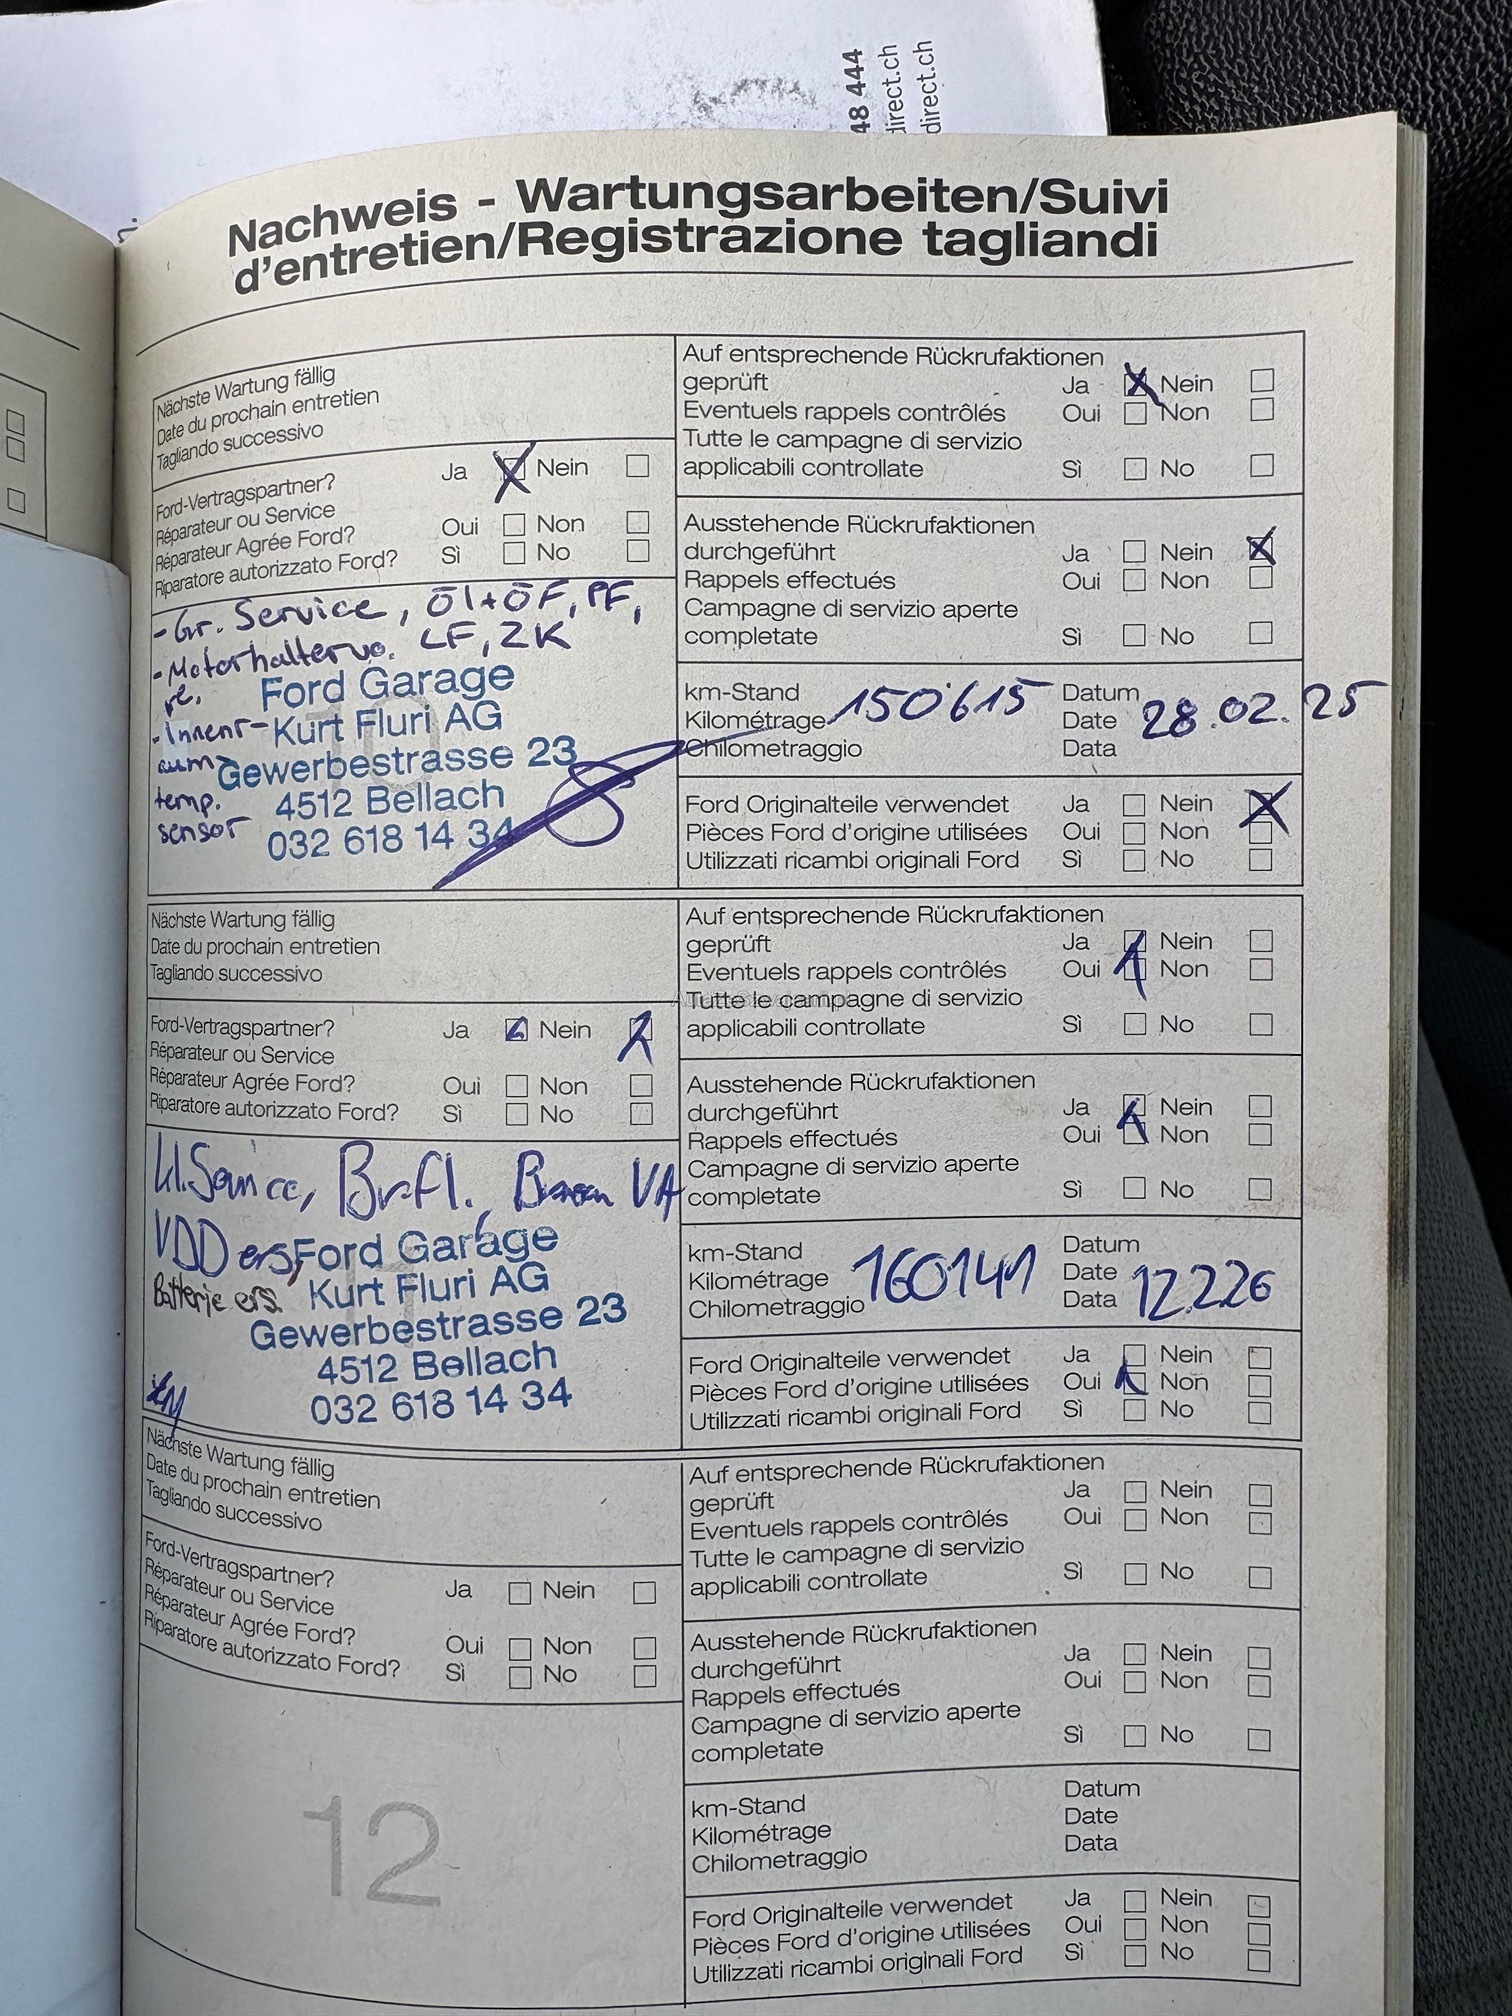 48 444
direct.ch
direct.ch
Nachweis - Wartungsarbeiten/Suivi
d'entretien/Registrazione tagliandi
Nächste Wartung fällig
Date du prochain entretien
Tagliando successivo
Ford-Vertragspartner?
Réparateur ou Service
Réparateur Agrée Ford?
Riparatore autorizzato Ford?
Ja Nein
Oui Non
Sì No
- Gr. Service, Öl+ÖF, PF,
- Motorhalterung. LF, ZK
re.
- Innenr-
aum-
temp.
sensor
Ford Garage
Kurt Fluri AG
Gewerbestrasse 23
4512 Bellach
032 618 14 34
Auf entsprechende Rückrufaktionen
geprüft Ja Nein
Eventuels rappels contrôlés Oui Non
Tutte le campagne di servizio
applicabili controllate Sì No
Ausstehende Rückrufaktionen
durchgeführt Ja Nein
Rappels effectués Oui Non
Campagne di servizio aperte
completate Sì No
km-Stand
Kilométrage 150'615
Chilometraggio
Datum
Date 28.02.25
Data
Ford Originalteile verwendet Ja Nein
Pièces Ford d'origine utilisées Oui Non
Utilizzati ricambi originali Ford Sì No
Nächste Wartung fällig
Date du prochain entretien
Tagliando successivo
Ford-Vertragspartner? Ja Nein
Réparateur ou Service
Réparateur Agrée Ford? Oui Non
Riparatore autorizzato Ford? Sì No
Kl. Service, Br.fl., VA
VDD ers,
Batterie ers.
Ford Garage
Kurt Fluri AG
Gewerbestrasse 23
4512 Bellach
032 618 14 34
Auf entsprechende Rückrufaktionen
geprüft Ja Nein
Eventuels rappels contrôlés Oui Non
Tutte le campagne di servizio
applicabili controllate Sì No
Ausstehende Rückrufaktionen
durchgeführt Ja Nein
Rappels effectués Oui Non
Campagne di servizio aperte
completate Sì No
km-Stand
Kilométrage 160141
Chilometraggio
Datum
Date 12.2.26
Data
Ford Originalteile verwendet Ja Nein
Pièces Ford d'origine utilisées Oui Non
Utilizzati ricambi originali Ford Sì No
Nächste Wartung fällig
Date du prochain entretien
Tagliando successivo
Ford-Vertragspartner?
Réparateur ou Service
Réparateur Agrée Ford?
Riparatore autorizzato Ford?
Ja Nein
Oui Non
Sì No
12
Auf entsprechende Rückrufaktionen
geprüft Ja Nein
Eventuels rappels contrôlés Oui Non
Tutte le campagne di servizio
applicabili controllate Sì No
Ausstehende Rückrufaktionen
durchgeführt Ja Nein
Rappels effectués Oui Non
Campagne di servizio aperte
completate Sì No
km-Stand
Kilométrage
Chilometraggio
Datum
Date
Data
Ford Originalteile verwendet Ja Nein
Pièces Ford d'origine utilisées Oui Non
Utilizzati ricambi originali Ford Sì No